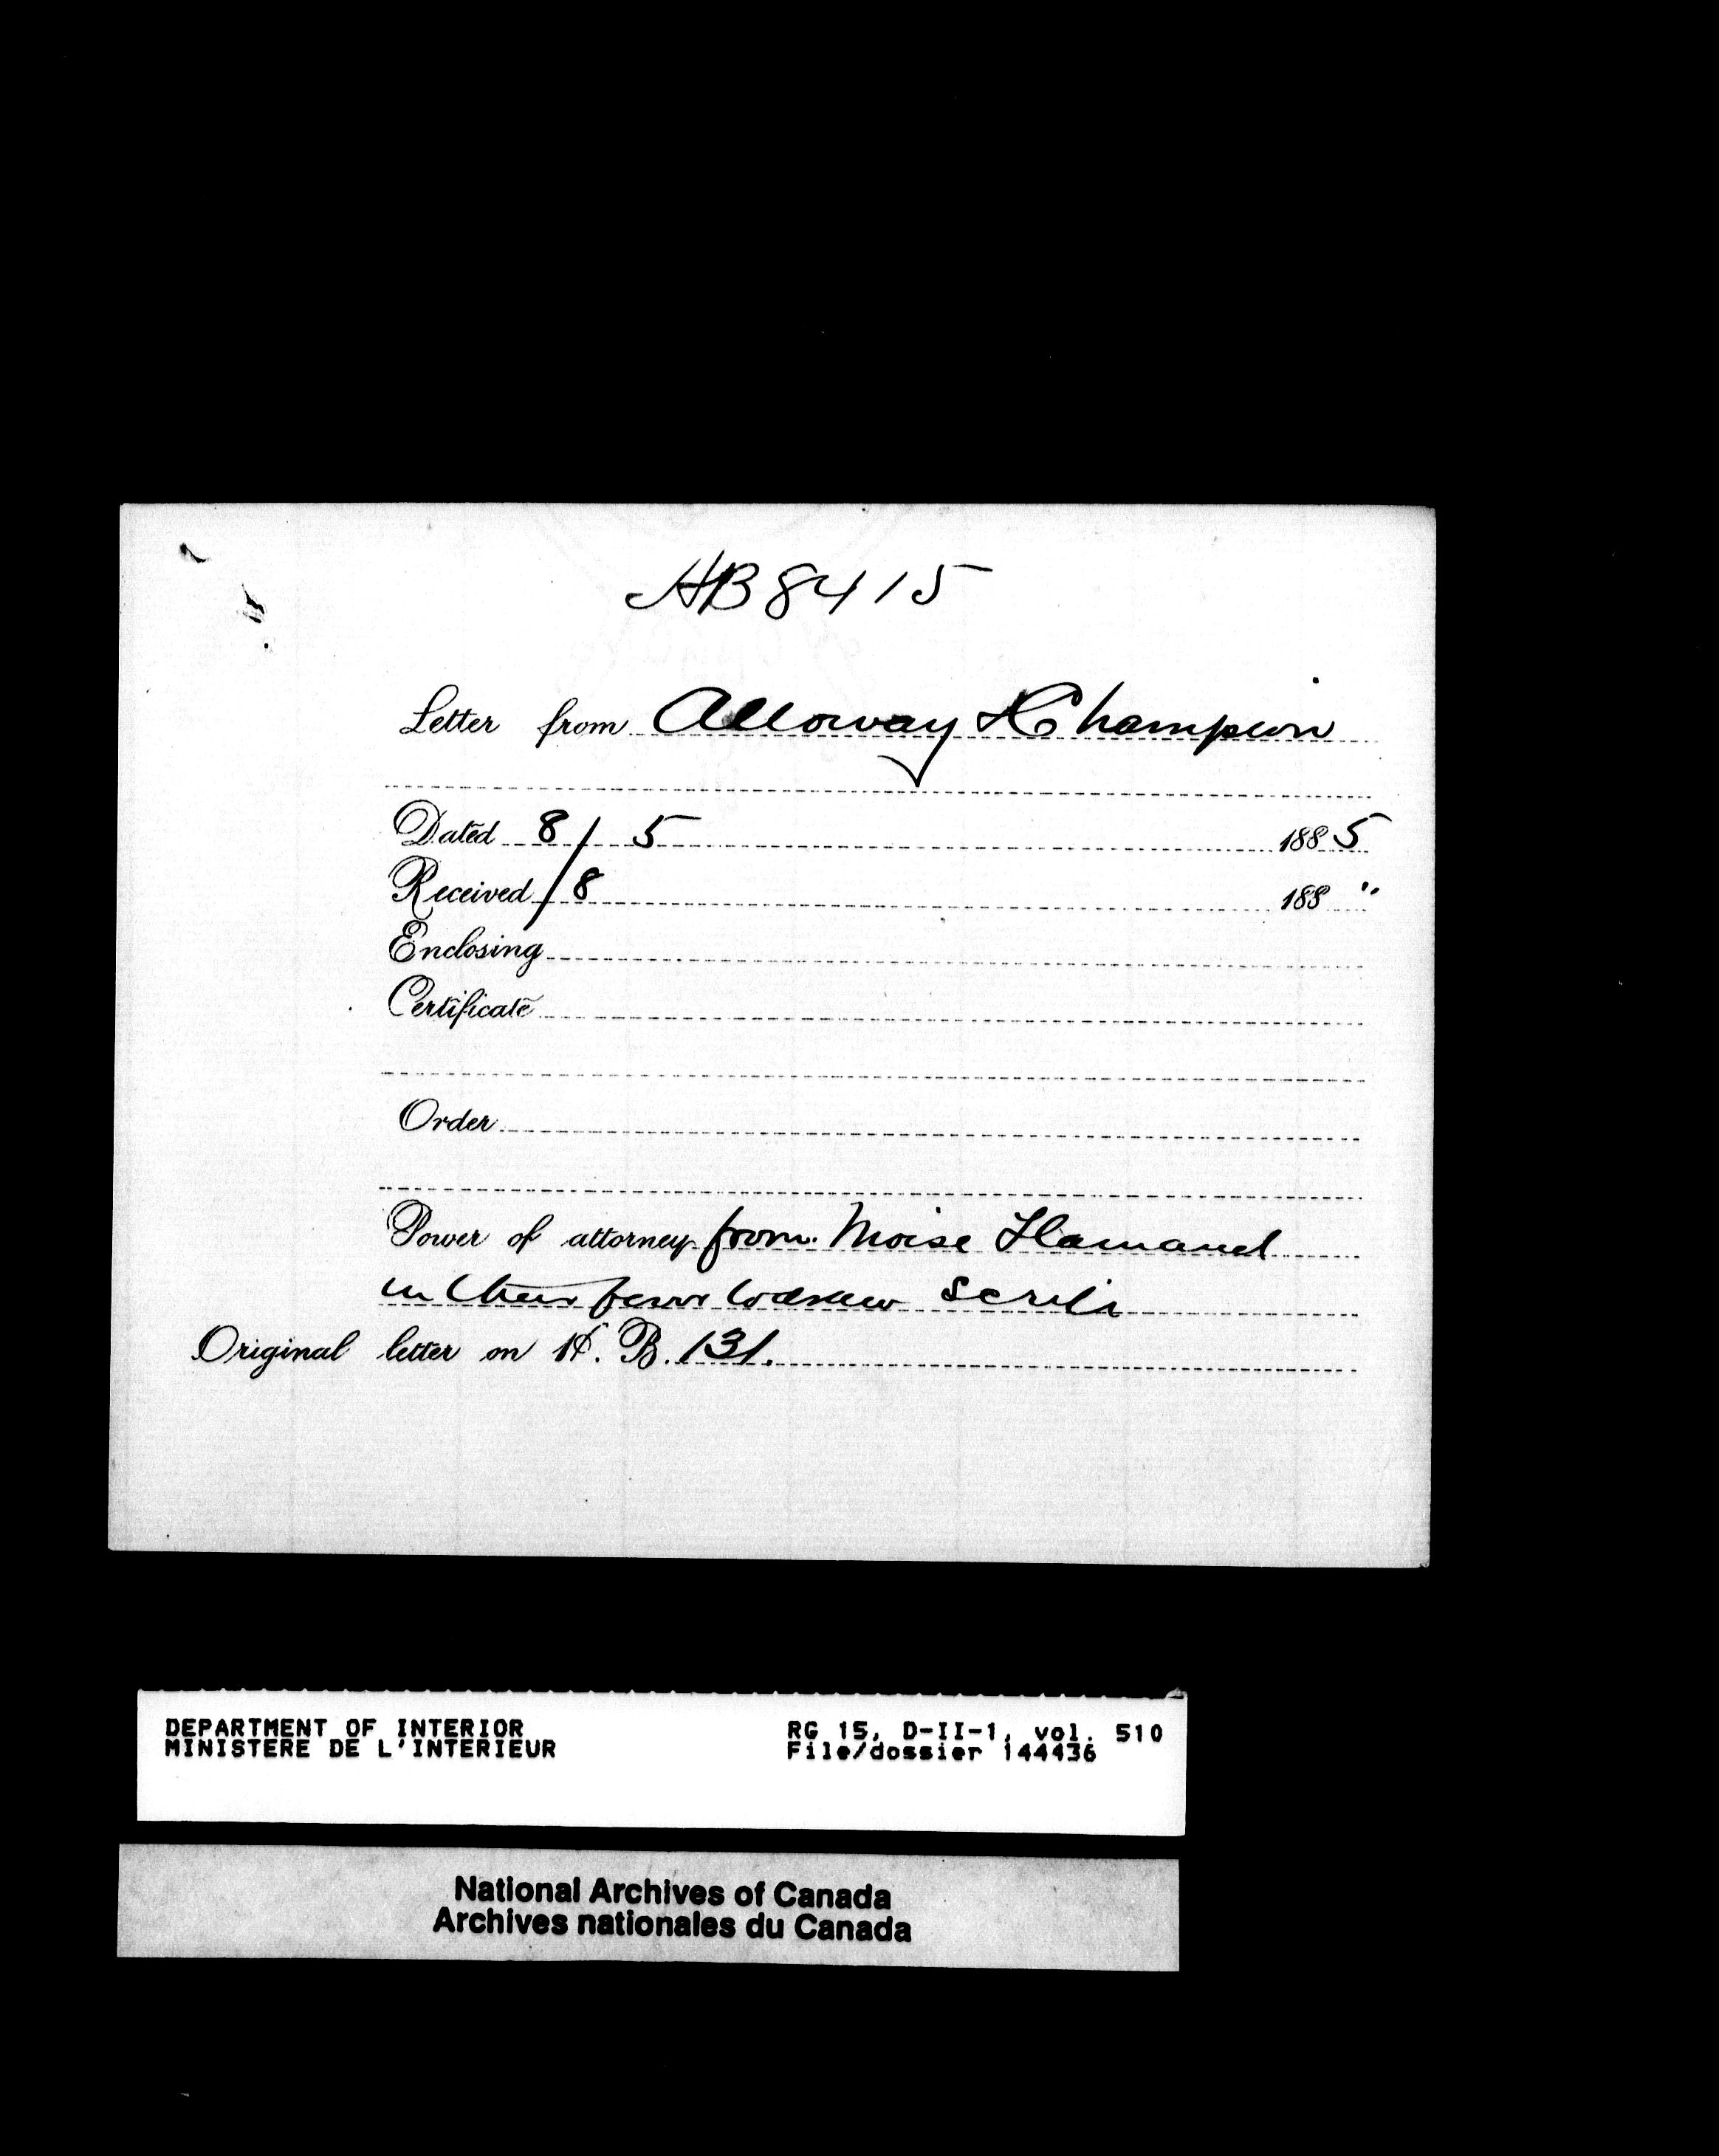 HB 8415
Letter from Alloway & Champion
Dated 8/5 1885
Received /8 188 "
Enclosing
Certificate
Order
Power of attorney from Moise Hamaud
in their favor to draw Scrip
Original letter on H. B. 131.
DEPARTMENT OF INTERIOR RG 15, D-II-1, vol. 510
MINISTERE DE L'INTERIEUR File/dossier 144436
National Archives of Canada
Archives nationales du Canada